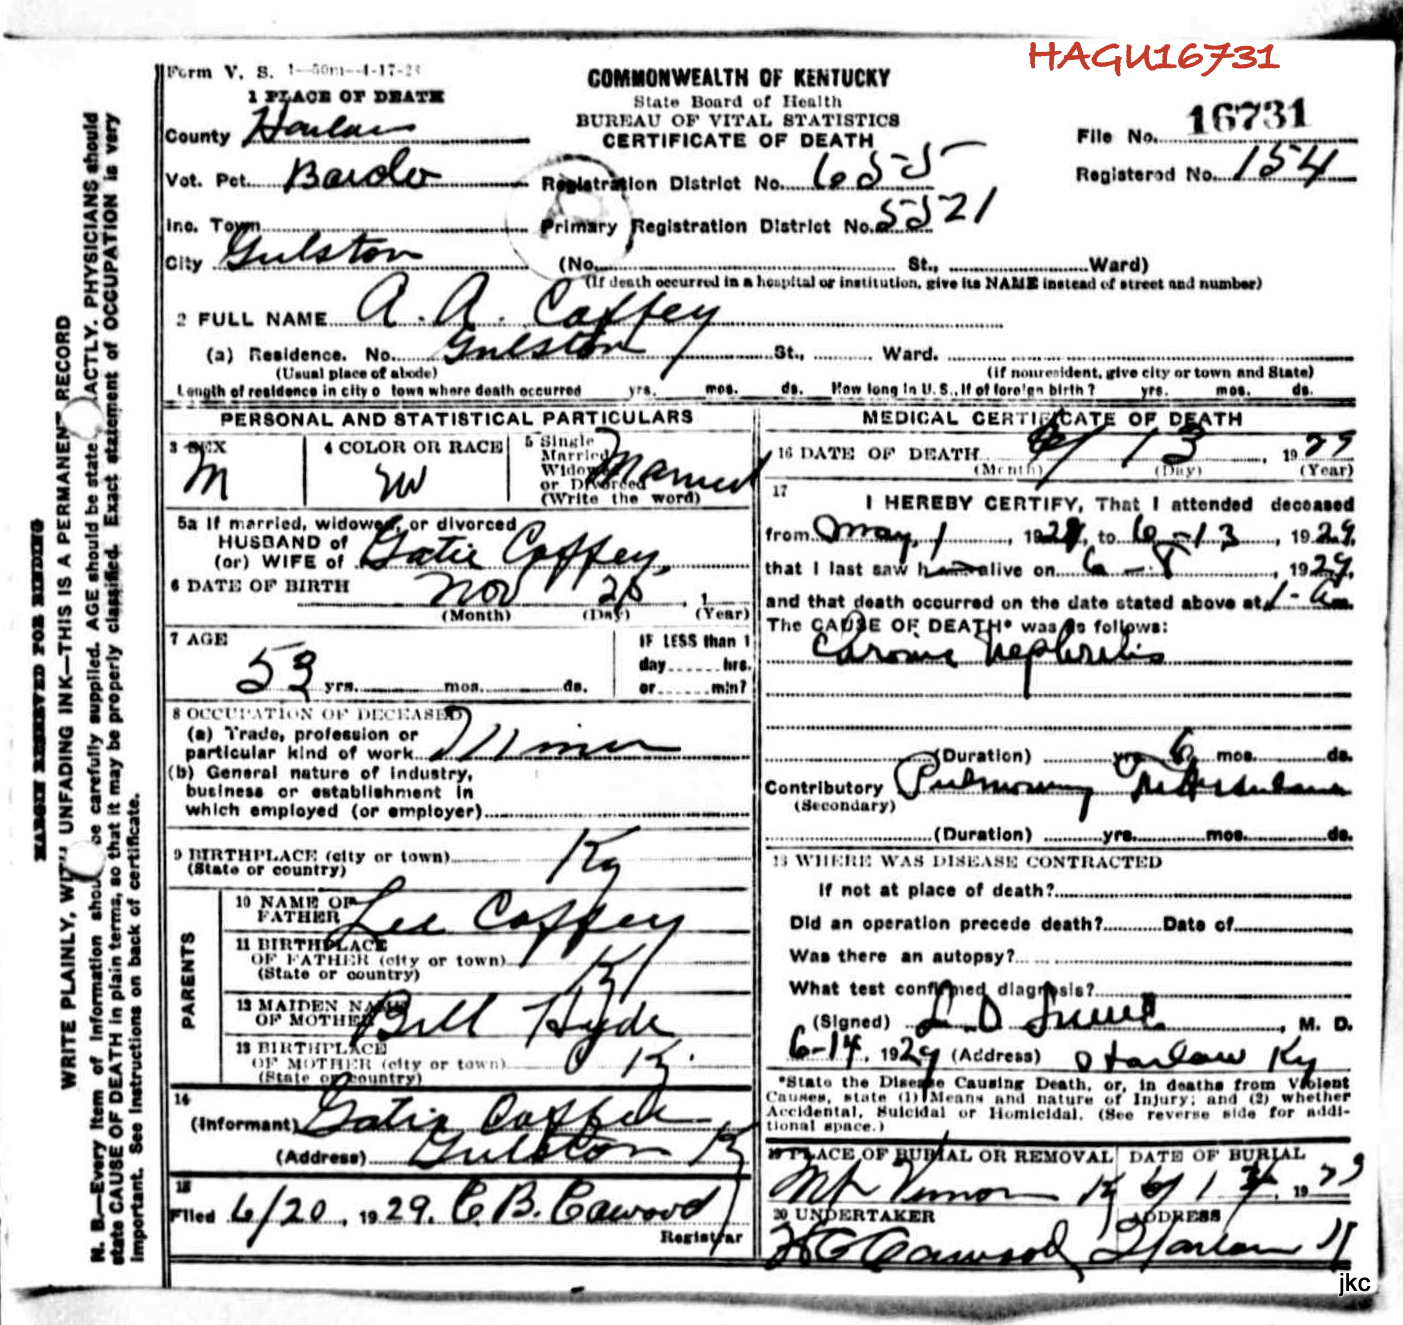 HAGU16731
Form V. S. 1-50m-4-17-28
COMMONWEALTH OF KENTUCKY
State Board of Health
BUREAU OF VITAL STATISTICS
CERTIFICATE OF DEATH
1 PLACE OF DEATH
County Harlan
File No. 16731
Vot. Pct. Bardo
Registration District No. 655
Registered No. 154
Inc. Town
Primary Registration District No. 5521
City Gulston
(No. St., Ward)
(If death occurred in a hospital or institution, give its NAME instead of street and number)
2 FULL NAME A. A. Coffey
(a) Residence. No. Gulston St., Ward.
(Usual place of abode) (If nonresident, give city or town and State)
Length of residence in city o town where death occurred yrs. mos. ds. How long in U. S., if of foreign birth? yrs. mos. ds.
PERSONAL AND STATISTICAL PARTICULARS
3 SEX M
4 COLOR OR RACE W
5 Single
Married
Widowed
or Divorced
(Write the word)
Married
5a If married, widowed, or divorced
HUSBAND of
(or) WIFE of Gatie Coffey
6 DATE OF BIRTH Nov 26, 1
(Month) (Day) (Year)
7 AGE
53 yrs. mos. ds.
IF LESS than 1
day hrs.
or min?
8 OCCUPATION OF DECEASED
(a) Trade, profession or
particular kind of work Miner
(b) General nature of industry,
business or establishment in
which employed (or employer)
9 BIRTHPLACE (city or town)
(State or country) Ky
PARENTS
10 NAME OF
FATHER Lee Coffey
11 BIRTHPLACE
OF FATHER (city or town)
(State or country) Ky
12 MAIDEN NAME
OF MOTHER Bell Hyde
13 BIRTHPLACE
OF MOTHER (city or town)
(State or country) Ky.
14
(Informant) Gatie Coffee
(Address) Gulston Ky
15
Filed 6/20, 1929. C. B. Cawood
Registrar
MEDICAL CERTIFICATE OF DEATH
16 DATE OF DEATH 6/13 1929
(Month) (Day) (Year)
17
I HEREBY CERTIFY, That I attended deceased
from May 1, 1929, to 6-13, 1929,
that I last saw h alive on 6-8, 1929,
and that death occurred on the date stated above at 1-a m.
The CAUSE OF DEATH* was as follows:
Chronic Nephritis
(Duration) yrs. 6 mos. ds.
Contributory Pulmonary Tuberculosis
(Secondary)
(Duration) yrs. mos. ds.
18 WHERE WAS DISEASE CONTRACTED
If not at place of death?
Did an operation precede death? Date of
Was there an autopsy?
What test confirmed diagnosis?
(Signed) L. D. M. D.
6-14, 1929 (Address) Harlan Ky
*State the Disease Causing Death, or, in deaths from Violent
Causes, state (1) Means and nature of Injury; and (2) whether
Accidental, Suicidal or Homicidal. (See reverse side for addi-
tional space.)
19 PLACE OF BURIAL OR REMOVAL DATE OF BURIAL
Mt Vernon Ky 6/1 19 29
20 UNDERTAKER ADDRESS
H C Cawood Harlan Ky
MARGIN RESERVED FOR BINDING
WRITE PLAINLY, WITH UNFADING INK—THIS IS A PERMANENT RECORD
N. B.—Every item of information should be carefully supplied. AGE should be stated EXACTLY. PHYSICIANS should
state CAUSE OF DEATH in plain terms, so that it may be properly classified. Exact statement of OCCUPATION is very
important. See instructions on back of certificate.
jkc